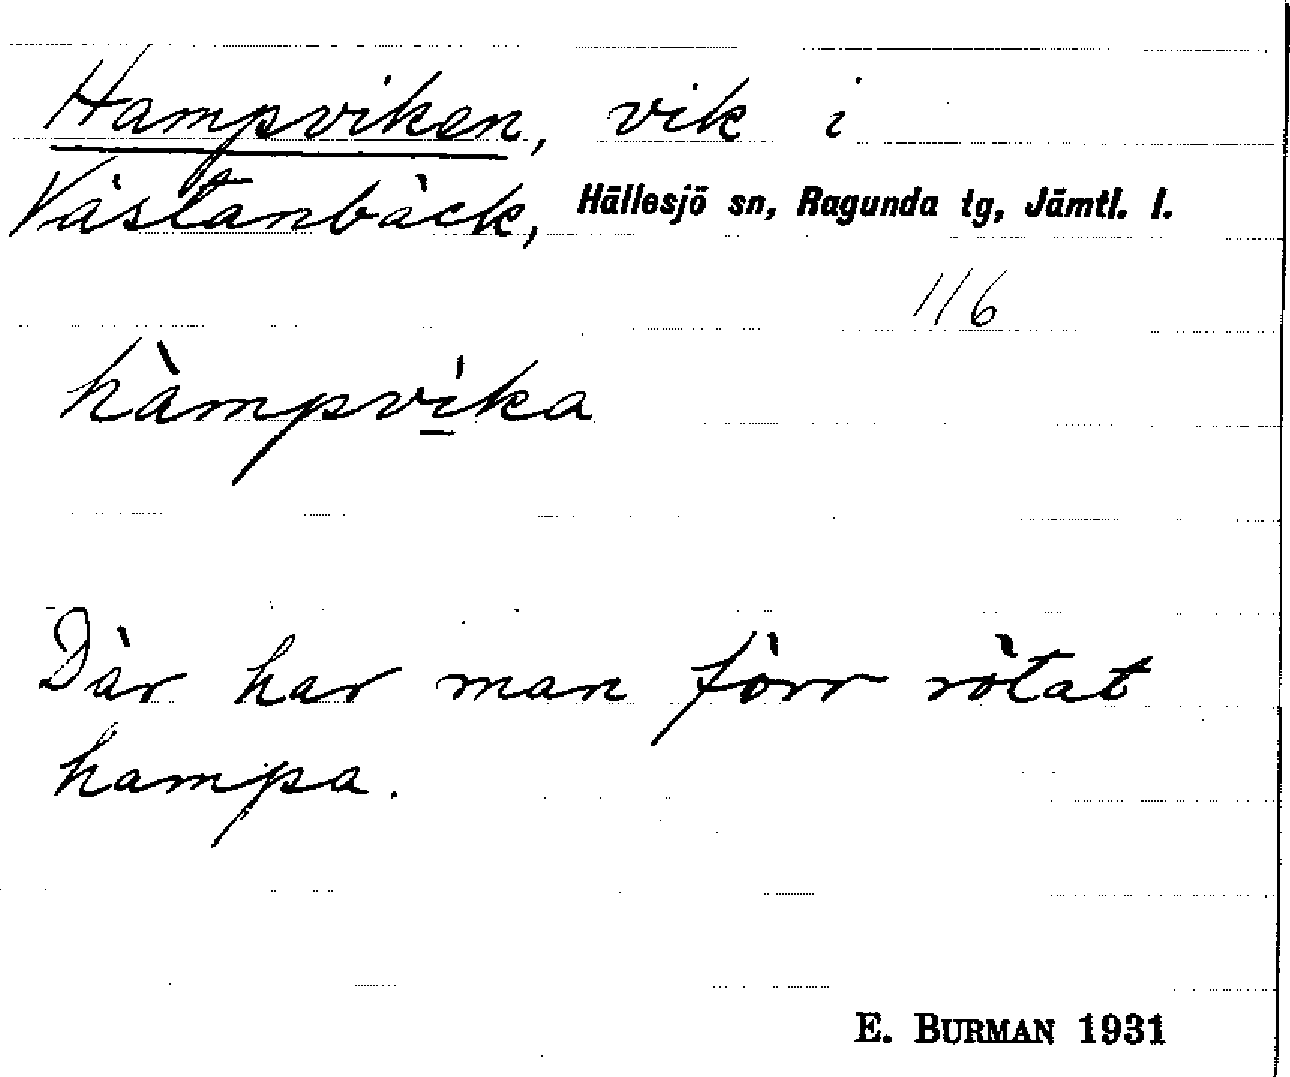 Hampviken, vik i
Västanbäck, Hällesjö sn, Ragunda tg, Jämtl. l.
116
hàmpvi̲ka
Där har man förr rötat
hampa.
E. BURMAN 1931